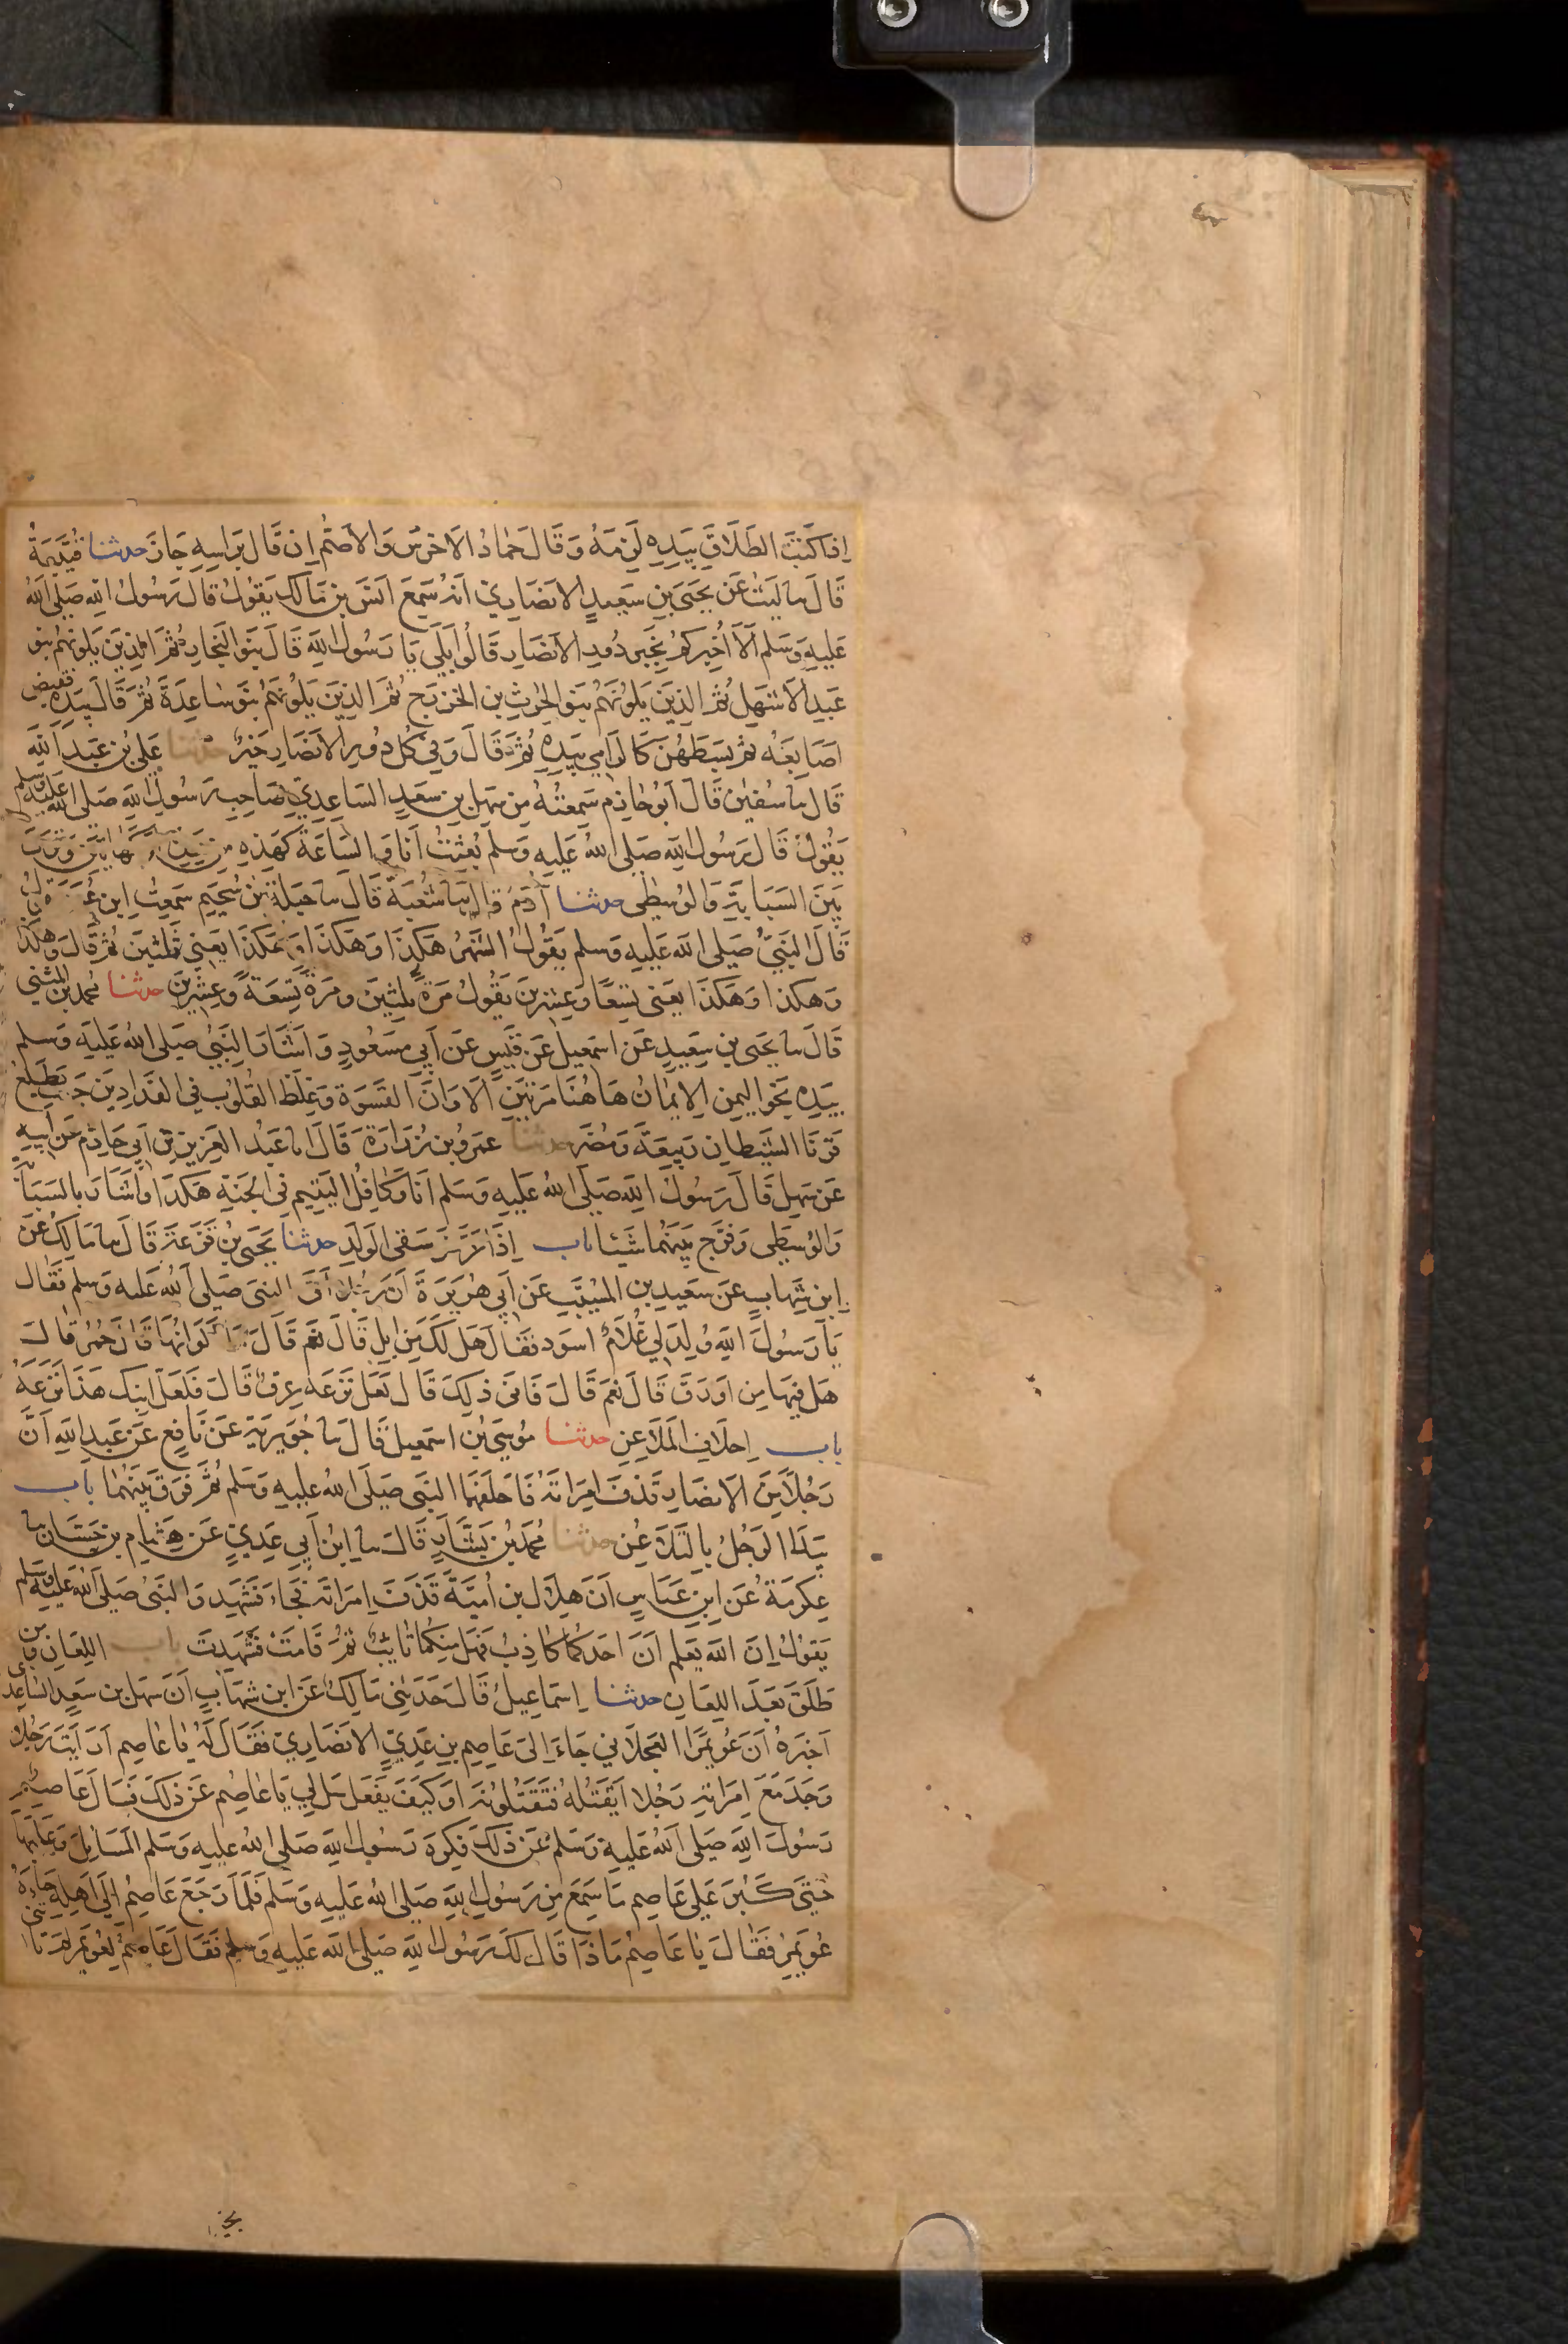 اذا كتب الطلاق بيده لزمه وقال حماد الاخرس والاصم ان قال براسه جاز حدثنا قتيبة
قال سا ليث عن يحيى بن سعيد الانصاري انه سمع انس بن مالك يقول قال رسول الله صلى الله
عليه وسلم الا اخبركم بخير دور الانصار قالوا بلى يا رسول الله قال بنو النجار ثم الذين يلونهم بنو
عبد الاشهل ثم الذين يلونهم بنو الحرث بن الخزرج ثم الذين يلونهم بنو ساعدة ثم قال بيده فقبض
اصابعه ثم بسطهن كالرامي بيده ثم قال وفي كل دور الانصار خير حدثنا علي بن عبد الله
قال سا سفين قال ابو حازم سمعته من سهل بن سعد الساعدي صاحب رسول الله صلى الله عليه وسلم
يقول قال رسول الله صلى الله عليه وسلم بعثت انا والساعة كهذه من وقرن
بين السبابة والوسطى حدثنا آدم قال سا شعبة قال سا جبلة بن سحيم سمعت ابن
قال النبي صلى الله عليه وسلم يقول الشهر هكذا وهكذا وهكذا يعني ثلثين ثم قال وهكذا
وهكذا وهكذا يعني تسعا وعشرين يقول مرة ثلثين ومرة تسعة وعشرين حدثنا محمد بن المثنى
قال سا يحيى بن سعيد عن اسمعيل عن قيس عن ابي مسعود واشار النبي صلى الله عليه وسلم
بيده نحو اليمن الايمان هاهنا مرتين الا وان القسوة وغلظ القلوب في الفدادين حيث يطلع
قرنا الشيطان ربيعة ومضر حدثنا عمرو بن زرارة قال انا عبد العزيز بن ابي حازم عن ابيه
عن سهل قال رسول الله صلى الله عليه وسلم انا وكافل اليتيم في الجنة هكذا واشار بالسبابة
والوسطى وفرج بينهما شيئا باب اذا عرض بنفي الولد حدثنا يحيى بن قزعة قال سا مالك عن
ابن شهاب عن سعيد بن المسيب عن ابي هريرة ان رجلا اتى النبي صلى الله عليه وسلم فقال
يا رسول الله ولد لي غلام اسود فقال هل لك من ابل قال نعم قال ما الوانها قال حمر قال
هل فيها من اورق قال نعم قال فانى ذلك قال لعل نزعه عرق قال فلعل ابنك هذا نزعه
باب احلاف الملاعن حدثنا موسى بن اسمعيل قال سا جويرية عن نافع عن عبد الله ان
رجلا من الانصار قذف امراته فاحلفهما النبي صلى الله عليه وسلم ثم فرق بينهما باب
يبدا الرجل بالتلاعن حدثنا محمد بن بشار قال سا ابن ابي عدي عن هشام بن حسان سا
عكرمة عن ابن عباس ان هلال بن امية قذف امراته فجاء فشهد والنبي صلى الله عليه وسلم
يقول ان الله يعلم ان احدكما كاذب فهل منكما تايب ثم قامت فشهدت باب اللعان ومن
طلق بعد اللعان حدثنا اسماعيل قال حدثني مالك عن ابن شهاب ان سهل بن سعد الساعدي
اخبره ان عويمرا العجلاني جاء الى عاصم بن عدي الانصاري فقال له يا عاصم ارايت رجلا
وجد مع امراته رجلا ايقتله فتقتلونه او كيف يفعل سل لي يا عاصم عن ذلك فسال عاصم
رسول الله صلى الله عليه وسلم عن ذلك فكره رسول الله صلى الله عليه وسلم المسايل وعابها
حتى كبر على عاصم ما سمع من رسول الله صلى الله عليه وسلم فلما رجع عاصم الى اهله جاءه
عويمر فقال يا عاصم ماذا قال لك رسول الله صلى الله عليه وسلم فقال عاصم لعويمر لم تاتني